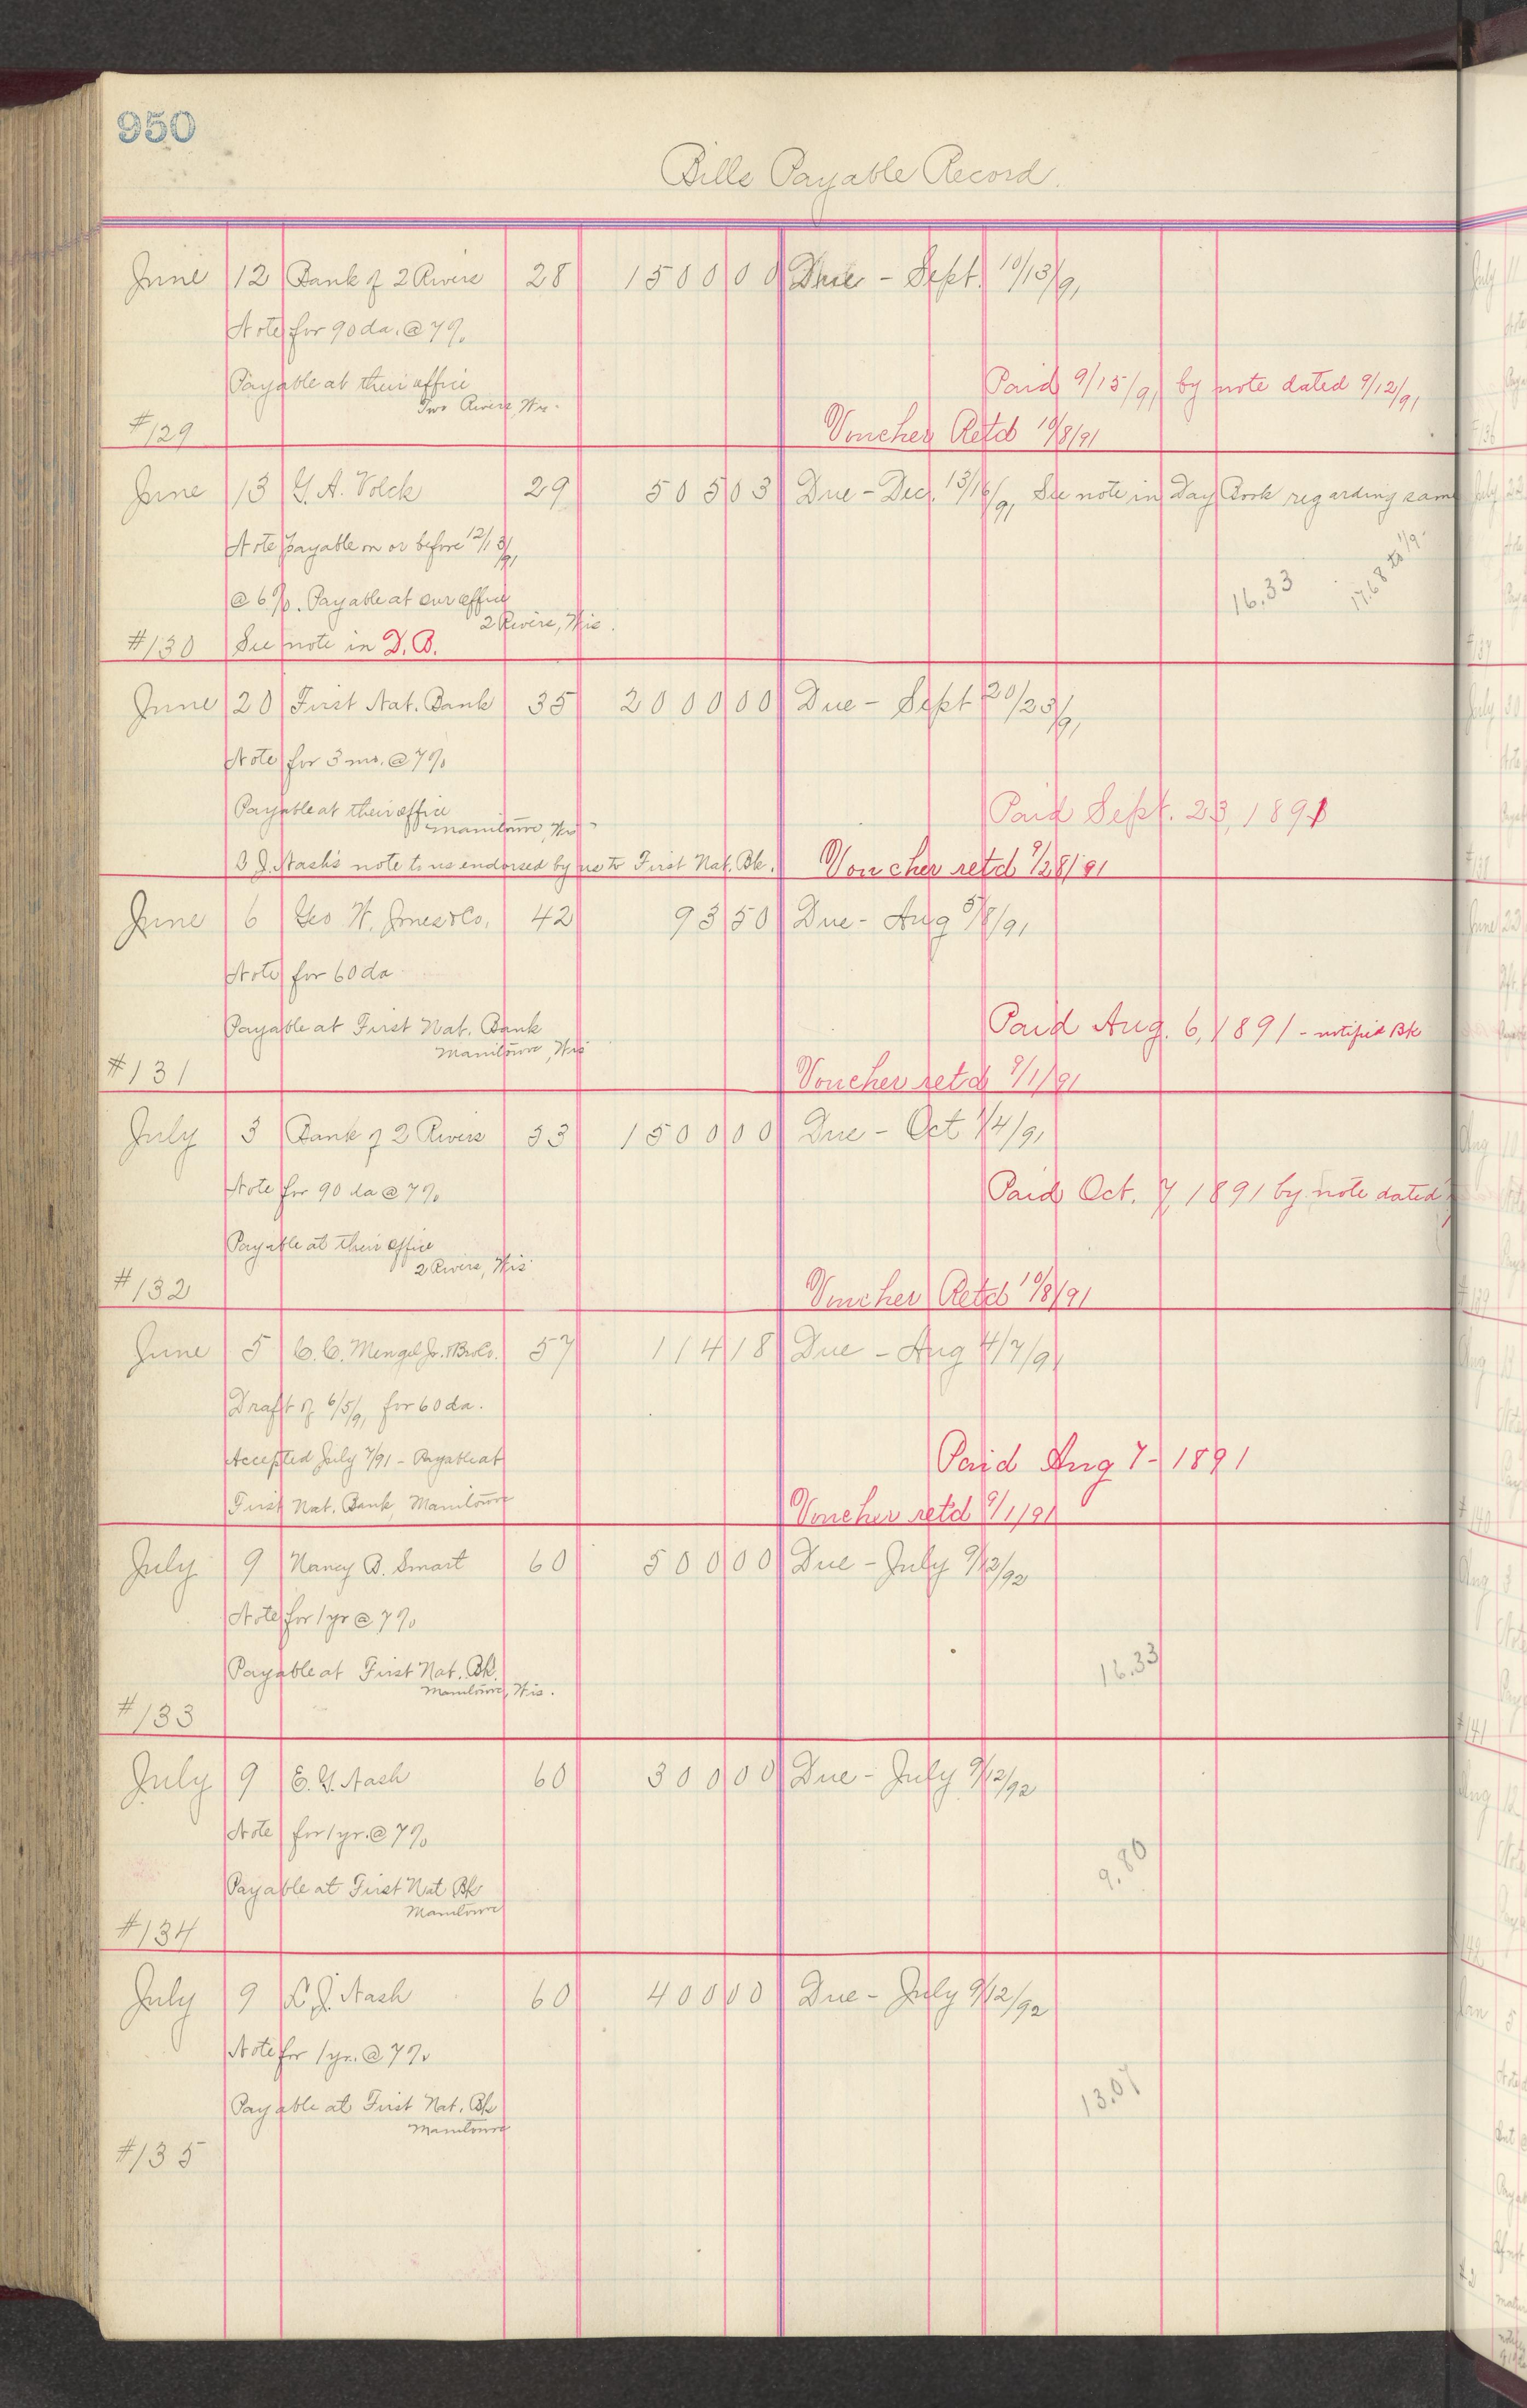 950
Bills Payable Record.
June 12 Bank of 2 Rivers 28 1500 00 Due - Sept. 10/13/91
Note for 90 da. @ 7%
Payable at their office Paid 9/15/91 by note dated 9/12/91
Two Rivers, Wis.
#129 Voucher Retd 10/8/91
June 13 G. A. Volck 29 505 03 Due - Dec. 13/16/91 See note in Day Book regarding same
Note payable on or before 12/13/91
@ 6%. Payable at our office 16.33
2 Rivers, Wis.
#130 See note in D. B.
June 20 First Nat. Bank 35 2000 00 Due - Sept 20/23/91
Note for 3 mo. @ 7%
Payable at their office Paid Sept. 23, 1891
Manitowoc, Wis
Nash's note to us endorsed by us to First Nat. Bk. Voucher retd 9/28/91
June 6 Geo W. Jones & Co. 42 93 50 Due - Aug 5/8/91
Note for 60 da
Payable at First Nat. Bank Paid Aug. 6, 1891 - notified Bk
Manitowoc, Wis
#131 Voucher retd 9/1/91
July 3 Bank of 2 Rivers 53 1500 00 Due - Oct 1/4/91
Note for 90 da @ 7%
Paid Oct. 7, 1891 by note dated
Payable at their office
2 Rivers, Wis
#132 Voucher Retd 10/8/91
June 5 C. C. Mengel Jr. & Bro Co. 57 114 18 Due - Aug 4/7/91
Draft of 6/5/91 for 60 da.
Accepted July 7/91 - Payable at Paid Aug 7 - 1891
First Nat. Bank, Manitowoc Voucher ret'd 9/1/91
July 9 Nancy B. Smart 60 500 00 Due - July 9/12/92
Note for 1 yr @ 7%
Payable at First Nat. Bk. 16.33
Manitowoc, Wis.
#133
July 9 E. G. Nash 60 300 00 Due - July 9/12/92
Note for 1 yr. @ 7%
Payable at First Nat Bk 9.80
Manitowoc
#134
July 9 L. J. Nash 60 400 00 Due - July 9/12/92
Note for 1 yr. @ 7%
Payable at First Nat. Bk 13.07
Manitowoc
#135